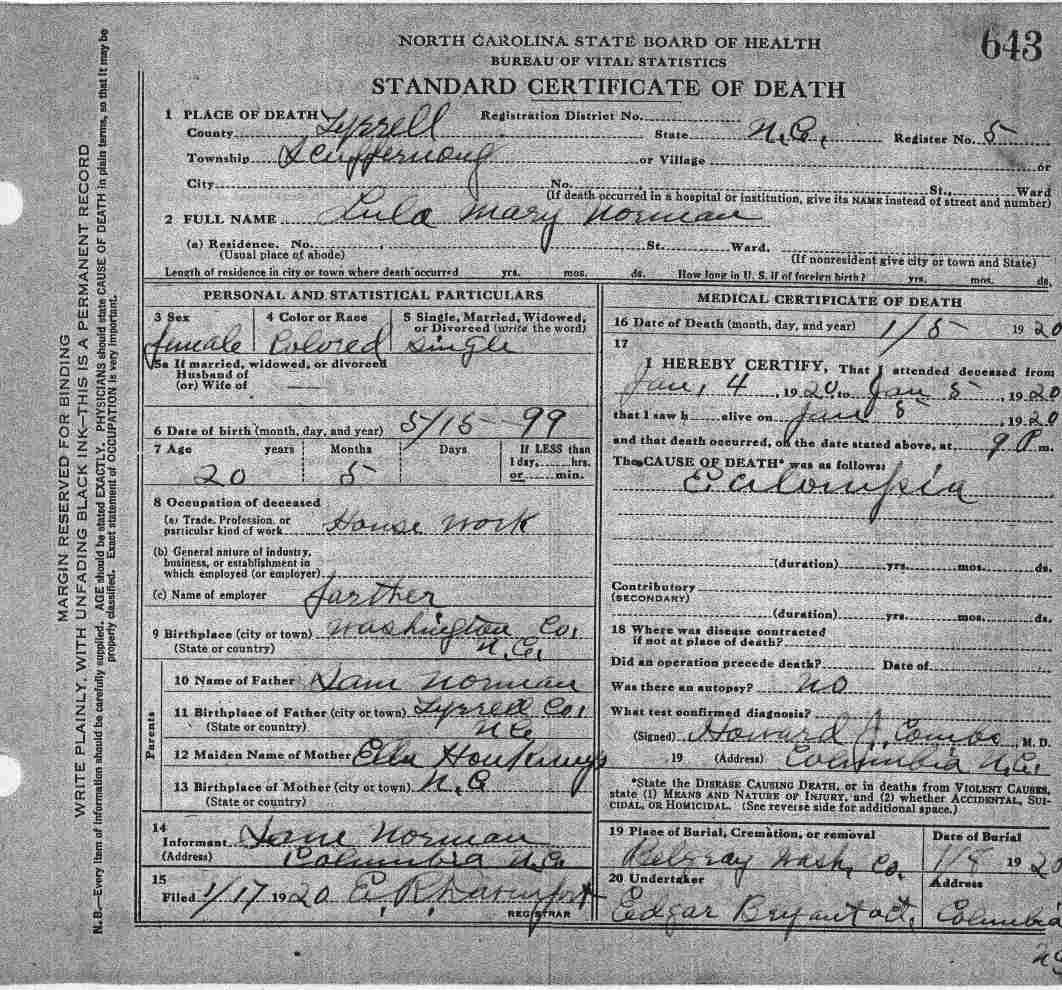 643
NORTH CAROLINA STATE BOARD OF HEALTH
BUREAU OF VITAL STATISTICS
STANDARD CERTIFICATE OF DEATH
1 PLACE OF DEATH Registration District No.
County Tyrrell State N.C. Register No. 5
Township Scuppernong or Village or
City No. St., Ward
(If death occurred in a hospital or institution, give its NAME instead of street and number)
2 FULL NAME Lula Mary Norman
(a) Residence. No. St. Ward.
(Usual place of abode) (If nonresident give city or town and State)
Length of residence in city or town where death occurred yrs. mos. ds. How long in U. S. if of foreign birth? yrs. mos. ds.
PERSONAL AND STATISTICAL PARTICULARS
3 Sex 4 Color or Race 5 Single, Married, Widowed,
or Divorced (write the word)
female Colored Single
5a If married, widowed, or divorced
Husband of
(or) Wife of —
6 Date of birth (month, day, and year) 5/15-99
7 Age years Months Days If LESS than
1 day, hrs.
20 5 or min.
8 Occupation of deceased
(a) Trade, Profession, or
particular kind of work House work
(b) General nature of industry,
business, or establishment in
which employed (or employer)
(c) Name of employer farther
9 Birthplace (city or town) Washington Co,
(State or country) N.C.
Parents
10 Name of Father Sam Norman
11 Birthplace of Father (city or town) Tyrrell Co,
(State or country) NC
12 Maiden Name of Mother Ella
13 Birthplace of Mother (city or town) N.C
(State or country)
14
Informant Norman
(Address) Columbia N.C
15
Filed 1/17 1920 E. R. Davenport
REGISTRAR
MEDICAL CERTIFICATE OF DEATH
16 Date of Death (month, day, and year) 1/5 1920
17
I HEREBY CERTIFY, That I attended deceased from
Jan, 4, 1920 to Jan 5, 1920
that I saw h alive on Jan 5, 1920
and that death occurred, on the date stated above, at 9 P m.
The CAUSE OF DEATH* was as follows:
Eclampsia
(duration) yrs. mos. ds.
Contributory
(SECONDARY)
(duration) yrs. mos. ds.
18 Where was disease contracted
if not at place of death?
Did an operation precede death? Date of
Was there an autopsy? no
What test confirmed diagnosis?
(Signed) Howard J. Combs, M. D.
19 (Address) Columbia N.C.
*State the DISEASE CAUSING DEATH, or in deaths from VIOLENT CAUSES,
state (1) MEANS AND NATURE OF INJURY, and (2) whether ACCIDENTAL, SUI-
CIDAL, OR HOMICIDAL. (See reverse side for additional space.)
19 Place of Burial, Cremation, or removal Date of Burial
Wash, Co. 1/8 1920
20 Undertaker Address
Edgar Bryant Columbia
NC
MARGIN RESERVED FOR BINDING
WRITE PLAINLY, WITH UNFADING BLACK INK—THIS IS A PERMANENT RECORD
N. B.—Every item of information should be carefully supplied. AGE should be stated EXACTLY. PHYSICIANS should state CAUSE OF DEATH in plain terms, so that it may be
properly classified. Exact statement of OCCUPATION is very important.